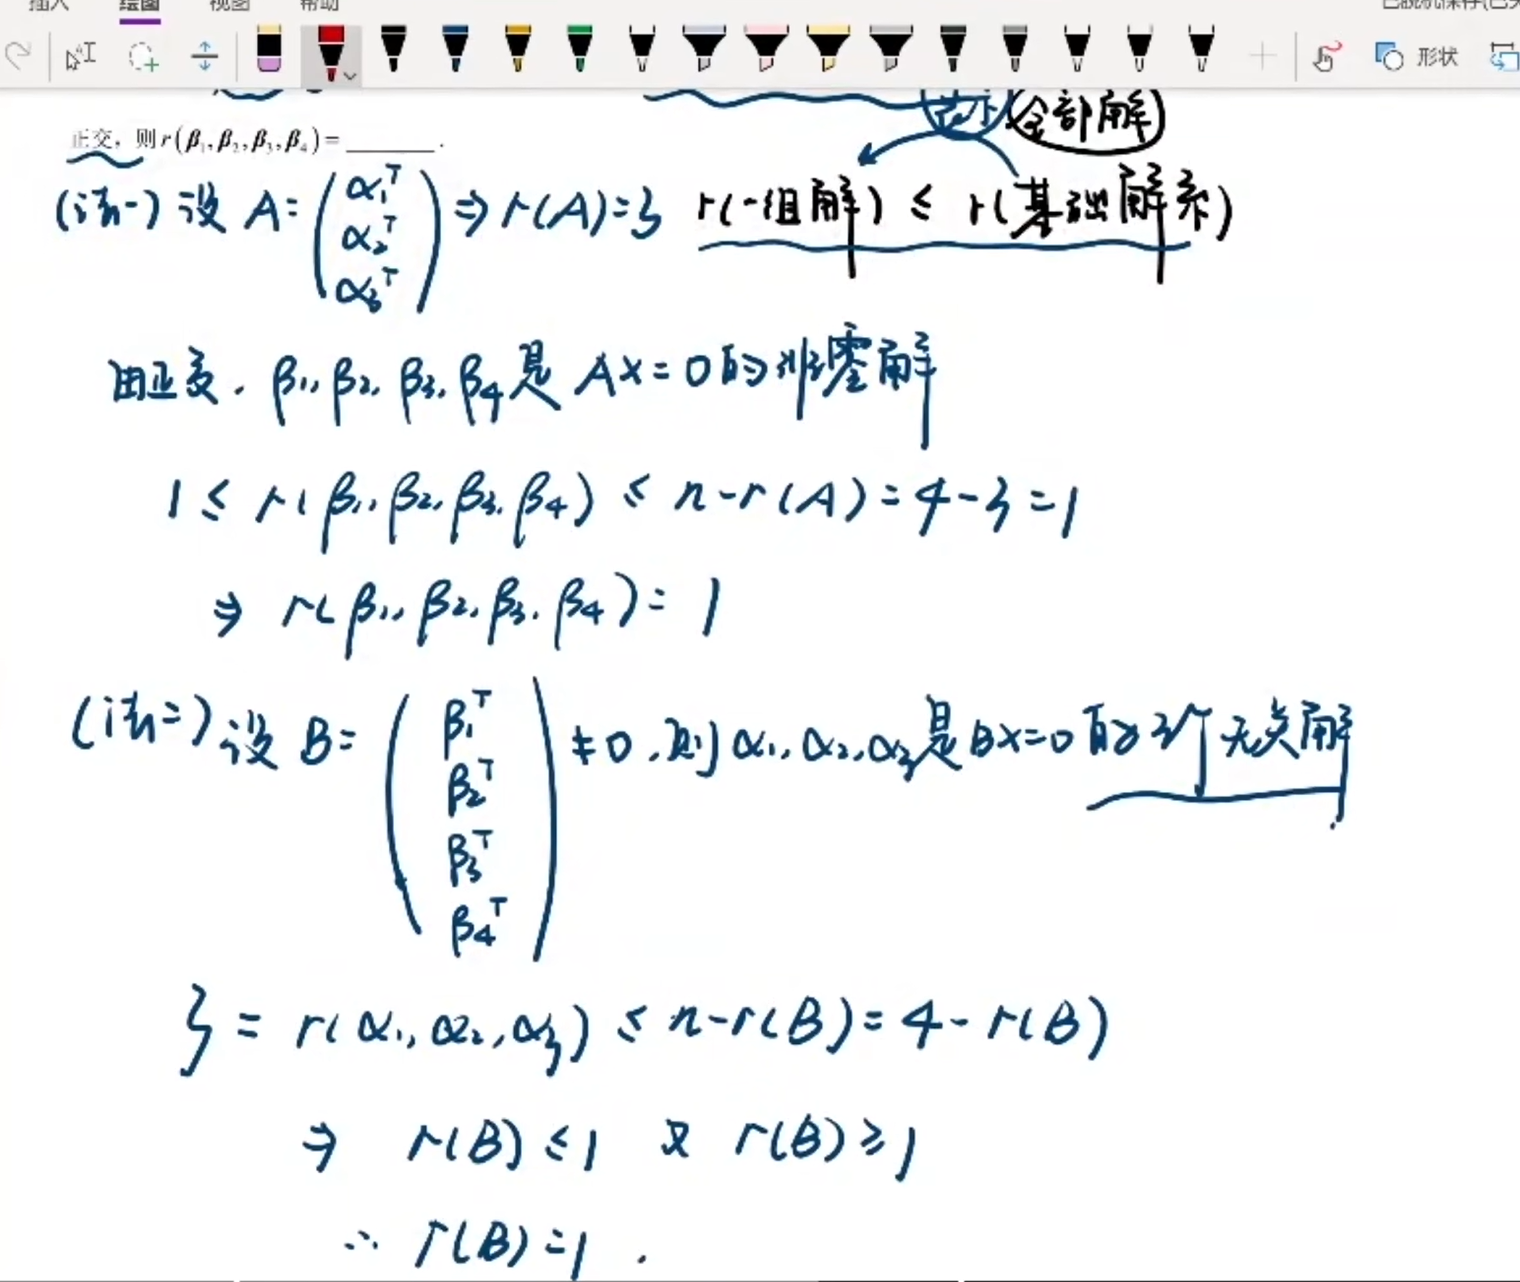 插入 绘图 视图 帮助
形状
表示 全部解
正交，则r(β₁,β₂,β₃,β₄)=______.
(法一) 设 A=(α₁ᵀ α₂ᵀ α₃ᵀ) ⇒ r(A)=3 r(一组解) ≤ r(基础解系)
由正交. β₁, β₂, β₃, β₄是 Ax=0的非零解
1 ≤ r(β₁, β₂, β₃, β₄) ≤ n-r(A)=4-3=1
⇒ r(β₁, β₂, β₃, β₄)=1
(法二) 设 B=(β₁ᵀ β₂ᵀ β₃ᵀ β₄ᵀ) ≠0, 则 α₁, α₂, α₃是Bx=0的3个无关解.
3 = r(α₁, α₂, α₃) ≤ n-r(B)=4-r(B)
⇒ r(B)≤1 又 r(B)≥1
∴ r(B)=1.